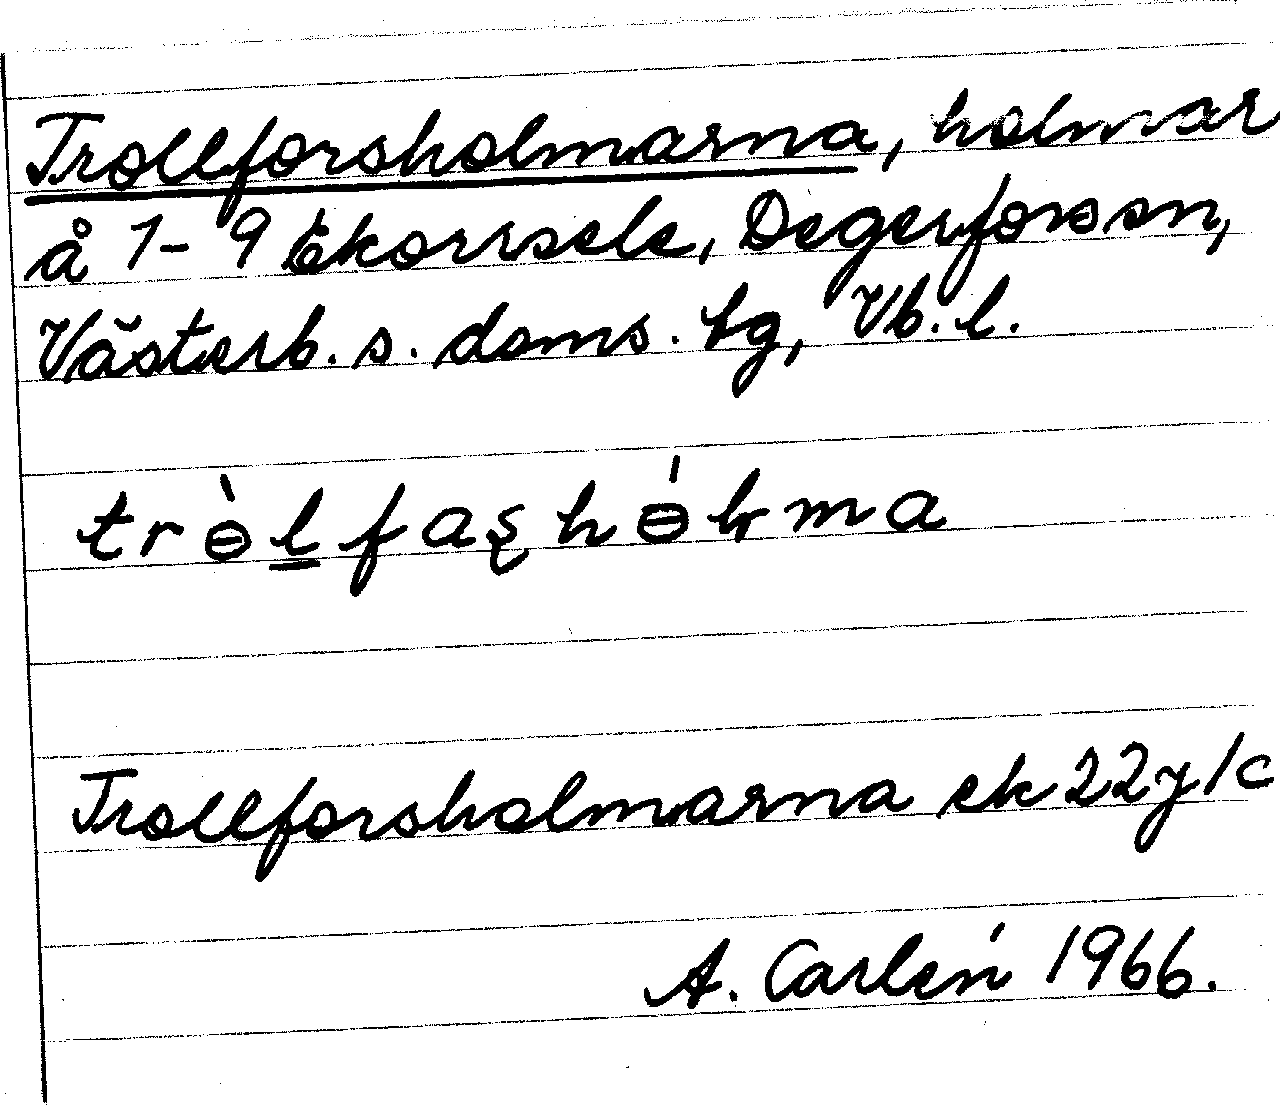 Trollforsholmarna, holmar
å 1-9 Ekorrsele, Degerfors sn,
Västerb. s. doms. tg, Vb. l.
trɵ̀l̲faʂhɵ́ɫma
Trollforsholmarna ek 22 y/c
A. Carlén 1966.